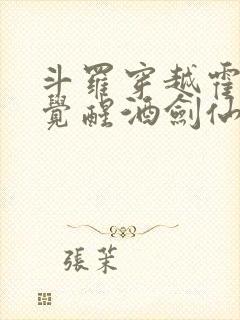 斗羅穿越霍
覺醒酒劍仙
張茉